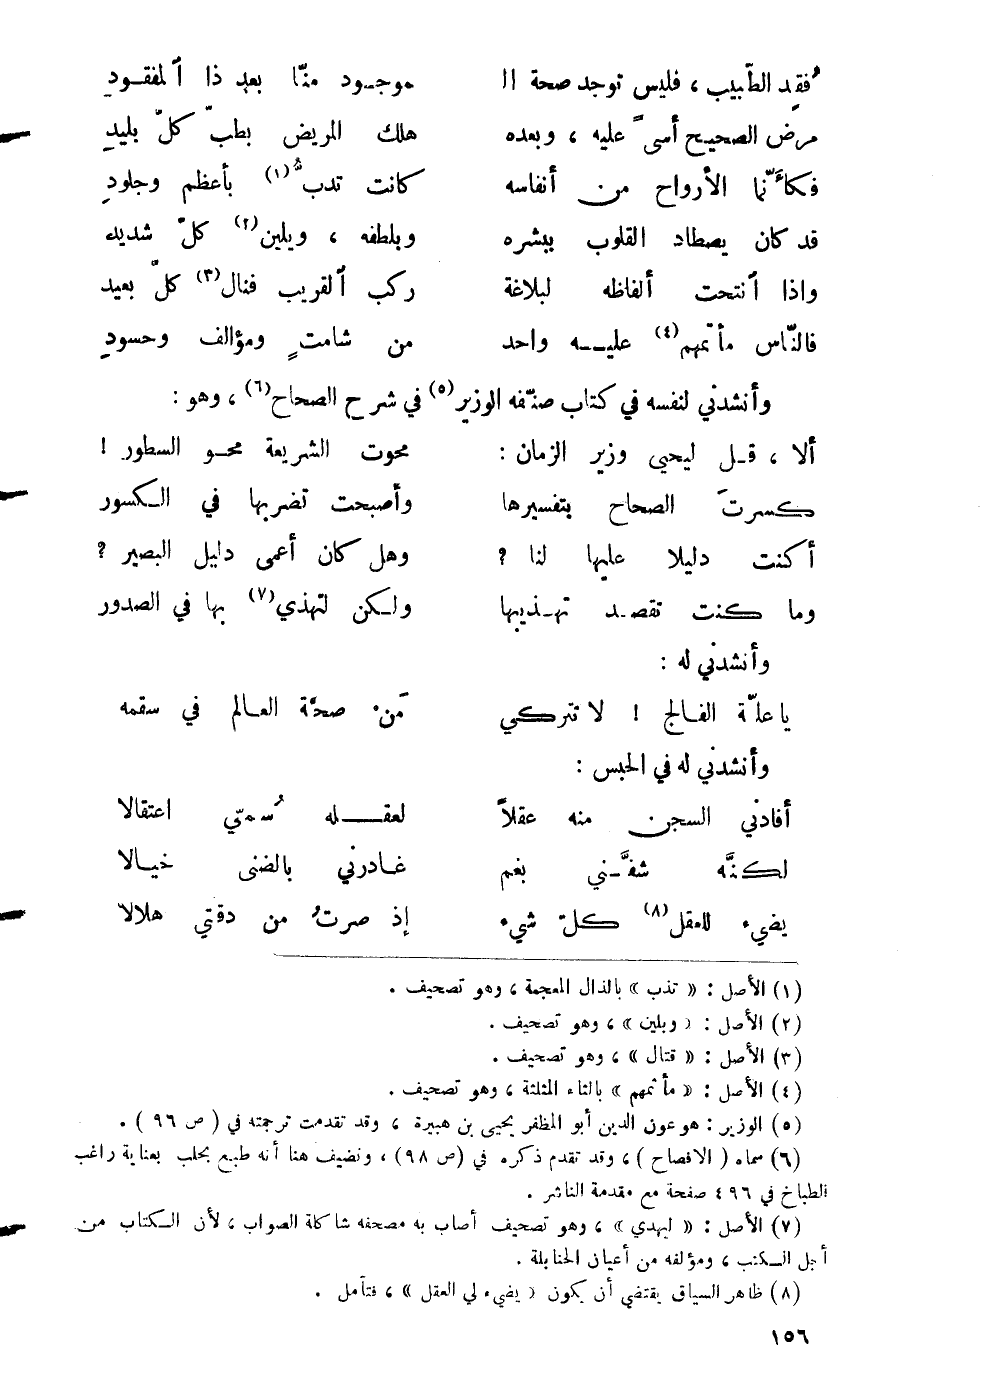 فُقِد الطّبيب ، فليس توجد صحة الـ موجـود منّا بعد ذا ٱلمفقـودِ
مرض الصحيح أسىً عليه ، وبعده هلك المريض بطبّ كلّ بليدِ
فكأنّما الأرواح من أنفاسه كانت تدبُّ(١) بأعظم وجلودِ
قد كان يصطاد القلوب ببشره وبلطفه ، ويلين(٢) كلّ شديد
واذا ٱنتحت ألفاظه لبلاغة ركب ٱلقريب فنال(٣) كلّ بعيد
فالنّاس مأتمهم(٤) عليـه واحد من شامتٍ ومؤالف وحسودِ
وأنشدني لنفسه في كتاب صنّفه الوزير(٥) في شرح الصحاح(٦) ، وهو :
ألا ، قـل ليحيى وزير الزمان : محوت الشريعة محـو السطور !
كسرتَ الصحاح بتفسيرها وأصبحت تضربها في الكسور
أكنت دليلا عليها لنا ؟ وهل كان أعمى دليل البصير ؟
وما كنت تقصـد تهـذيبها ولكن لتهذي(٧) بها في الصدور
وأنشدني له :
يا علّة الفـالج ! لا تتركي مَنْ صحَّة العـالم في سقمه
وأنشدني له في الحبس :
أفادني السجن منه عقلاً لعقـله سُمّي اعتقالا
لكنَّه شفَّـني بغم غـادرني بالضنى خيـالا
يضيء للعقل(٨) كلّ شيء إذ صرتُ من دقتي هلالا
(١) الأصل : « تذب » بالذال المعجمة ، وهو تصحيف .
(٢) الأصل : « وبلين » ، وهو تصحيف .
(٣) الأصل : « قتال » ، وهو تصحيف .
(٤) الأصل : « مأثمهم » بالثاء المثلثة ، وهو تصحيف .
(٥) الوزير : هو عون الدين أبو المظفر يحيى بن هبيرة ، وقد تقدمت ترجمته في ( ص ٩٦ ) .
(٦) سماه ( الافصاح ) ، وقد تقدم ذكره في (ص ٩٨) ، ونضيف هنا أنه طبع بحلب بعناية راغب
الطباخ في ٤٩٦ صفحة مع مقدمة الناشر .
(٧) الأصل : « ليهدي » ، وهو تصحيف أصاب به مصحفه شاكلة الصواب ، لأن الكتاب من
أجل الكتب ، ومؤلفه من أعيان الحنابلة .
(٨) ظاهر السياق يقتضي أن يكون « يضيء لي العقل » ، فتأمل .
١٥٦